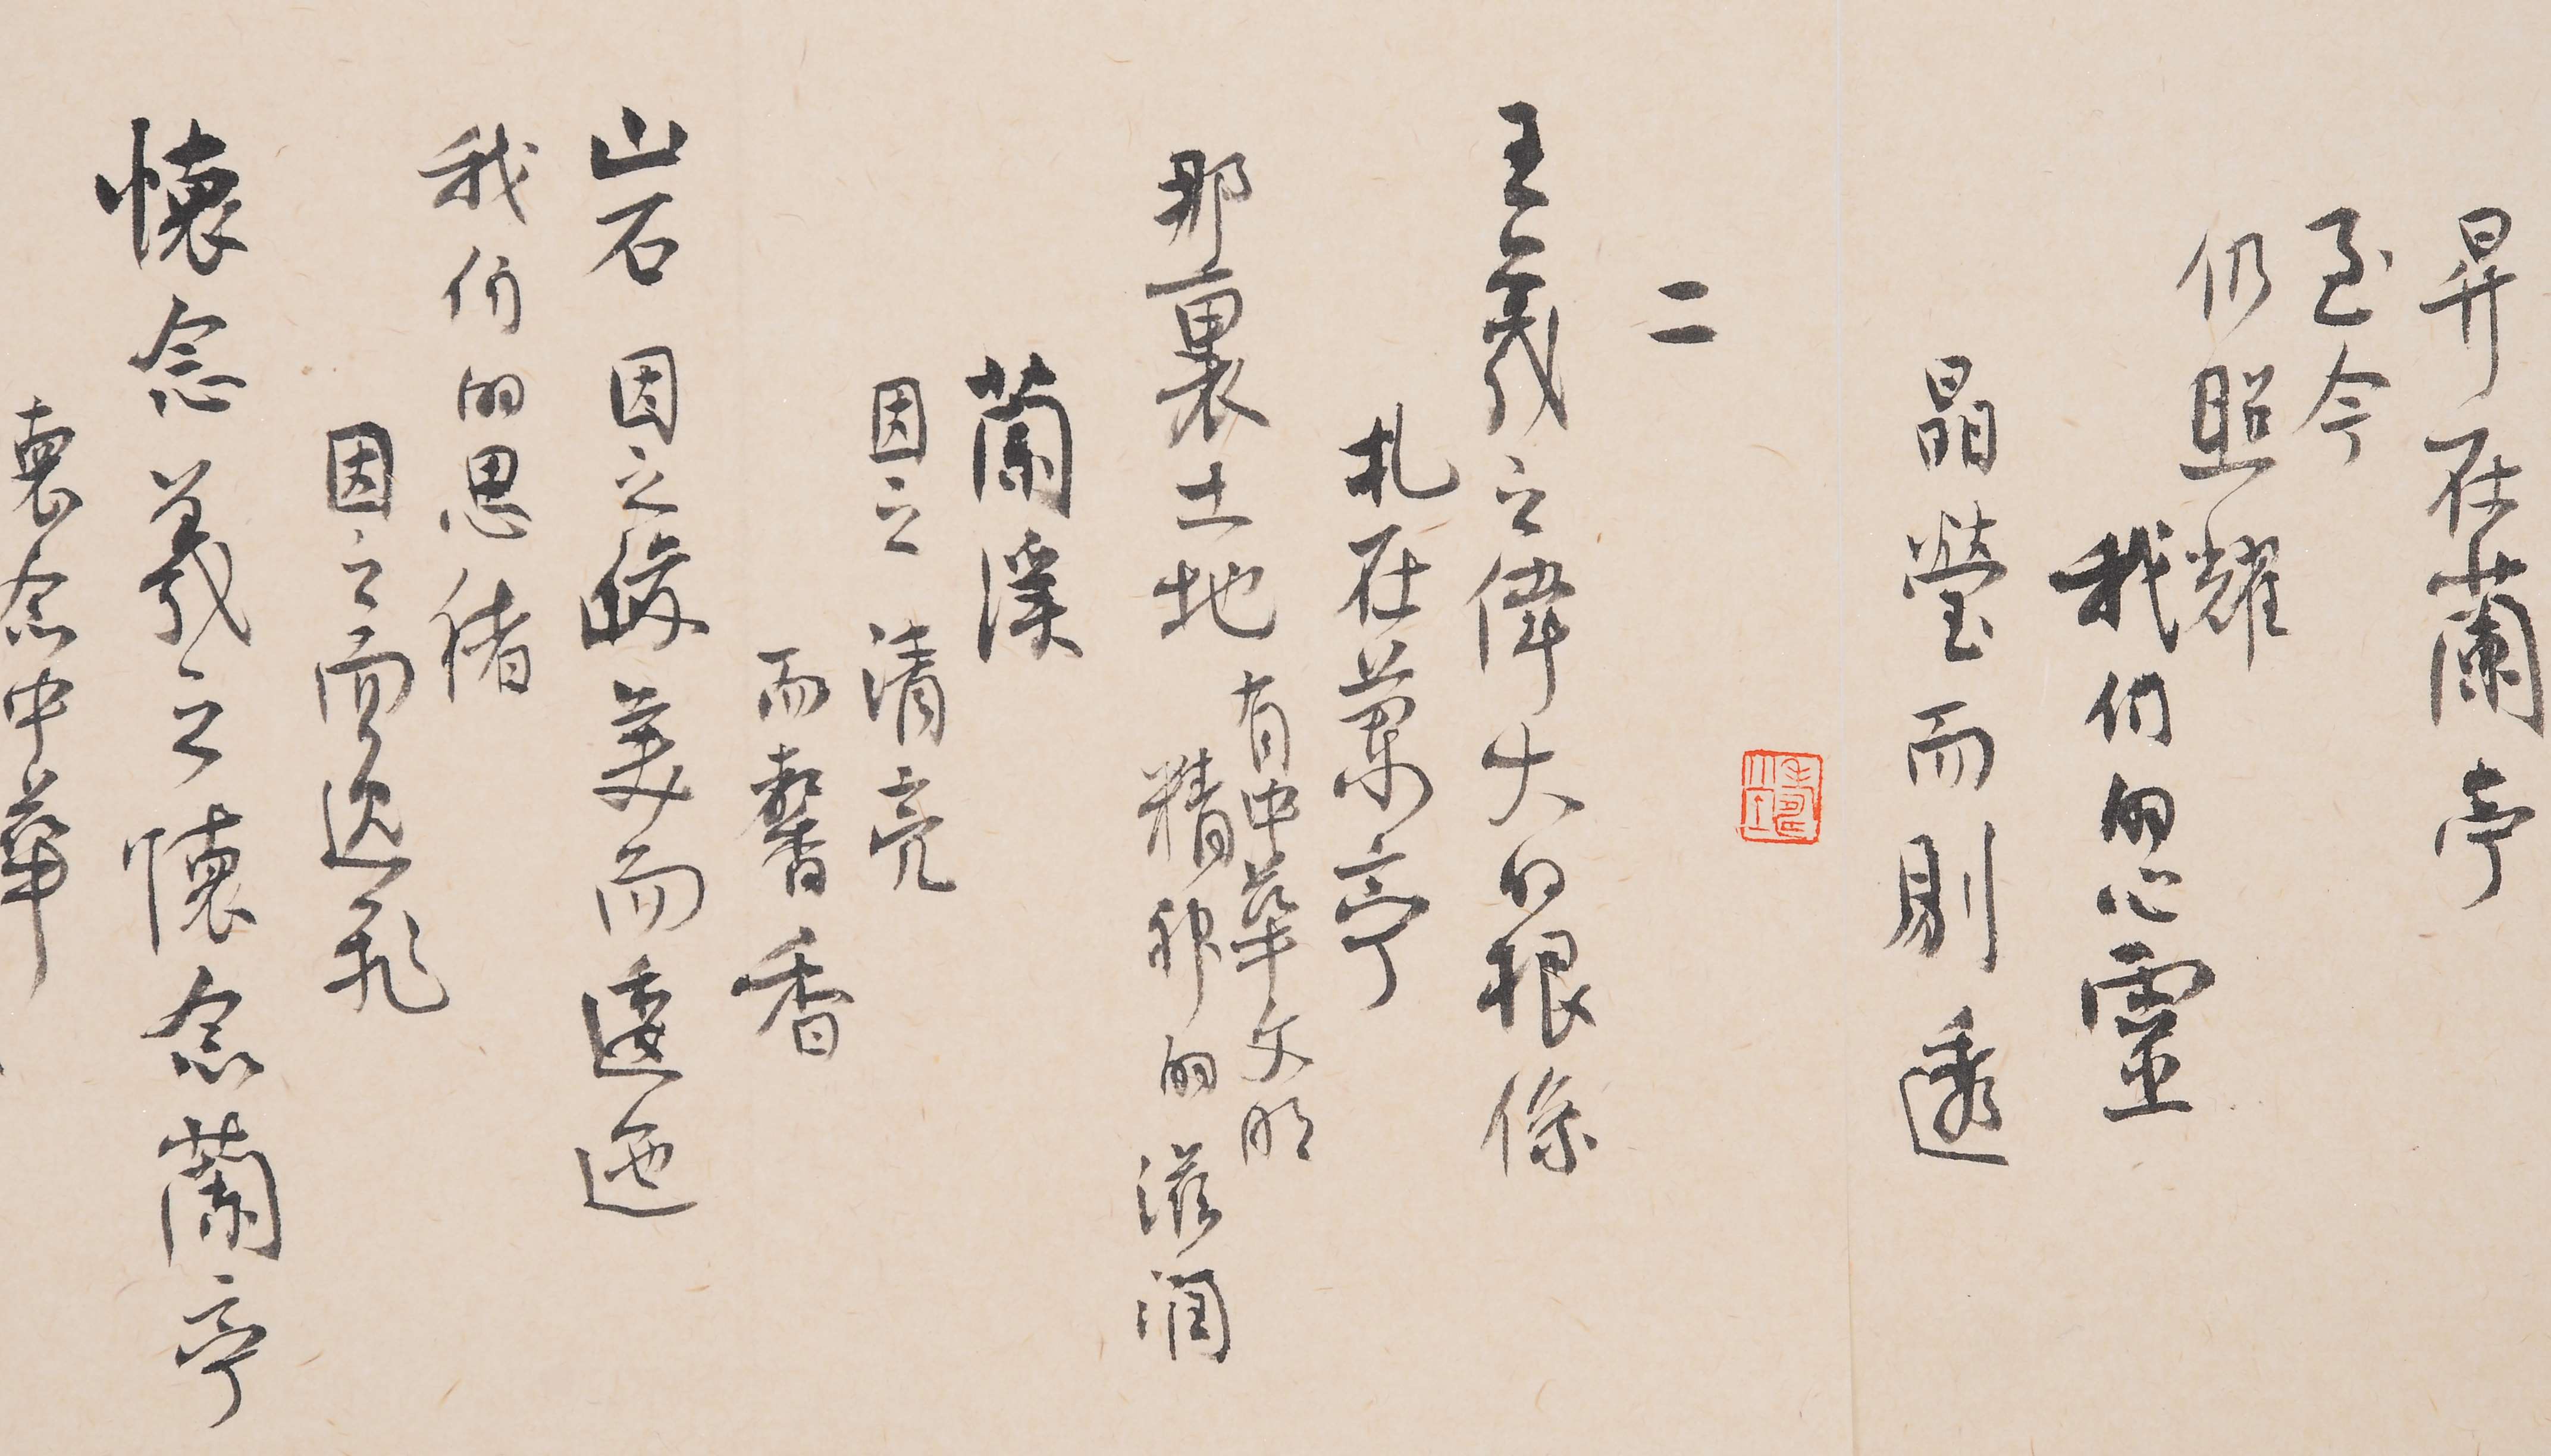 昇在蘭亭
至今
仍照耀
我们的心靈
晶瑩而剔透
二
王羲之偉大的根係
扎在蘭亭
那裏土地有中華文明
精神的滋润
蘭溪
因之清亮
而馨香
山石因之峻美而逶迤
我们的思绪
因之而逸飛
懷念羲之懷念蘭亭
懷念中華